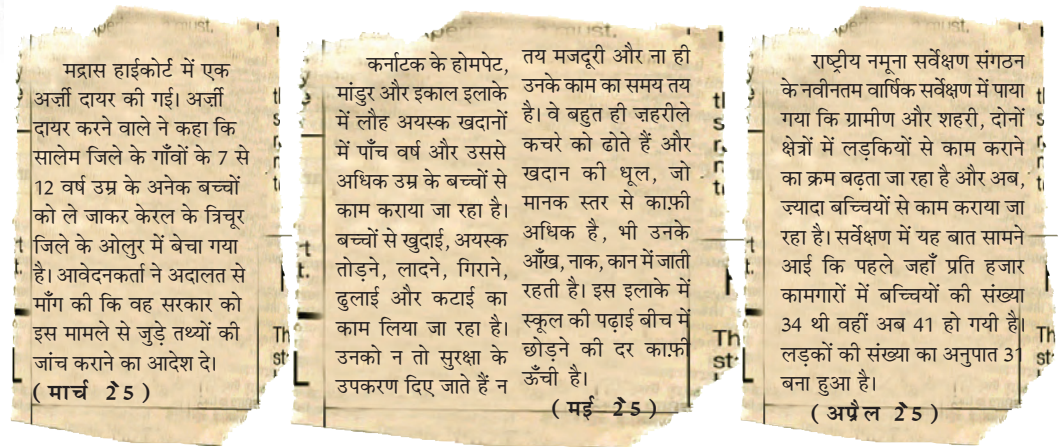 मद्रास हाईकोर्ट में एक
अर्ज़ी दायर की गई। अर्ज़ी
दायर करने वाले ने कहा कि
सालेम जिले के गाँवों के 7 से
12 वर्ष उम्र के अनेक बच्चों
को ले जाकर केरल के त्रिचूर
जिले के ओलुर में बेचा गया
है। आवेदनकर्ता ने अदालत से
माँग की कि वह सरकार को
इस मामले से जुड़े तथ्यों की
जांच कराने का आदेश दे।
(मार्च 25)
कर्नाटक के होमपेट,
मांडुर और इकाल इलाके
में लौह अयस्क खदानों
में पाँच वर्ष और उससे
अधिक उम्र के बच्चों से
काम कराया जा रहा है।
बच्चों से खुदाई, अयस्क
तोड़ने, लादने, गिराने,
ढुलाई और कटाई का
काम लिया जा रहा है।
उनको न तो सुरक्षा के
उपकरण दिए जाते हैं न
तय मजदूरी और ना ही
उनके काम का समय तय
है। वे बहुत ही ज़हरीले
कचरे को ढोते हैं और
खदान की धूल, जो
मानक स्तर से काफ़ी
अधिक है, भी उनके
आँख, नाक, कान में जाती
रहती है। इस इलाके में
स्कूल की पढ़ाई बीच में
छोड़ने की दर काफ़ी
ऊँची है।
(मई 25)
राष्ट्रीय नमूना सर्वेक्षण संगठन
के नवीनतम वार्षिक सर्वेक्षण में पाया
गया कि ग्रामीण और शहरी, दोनों
क्षेत्रों में लड़कियों से काम कराने
का क्रम बढ़ता जा रहा है और अब,
ज़्यादा बच्चियों से काम कराया जा
रहा है। सर्वेक्षण में यह बात सामने
आई कि पहले जहाँ प्रति हजार
कामगारों में बच्चियों की संख्या
34 थी वहीं अब 41 हो गयी है।
लड़कों की संख्या का अनुपात 31
बना हुआ है।
(अप्रैल 25)